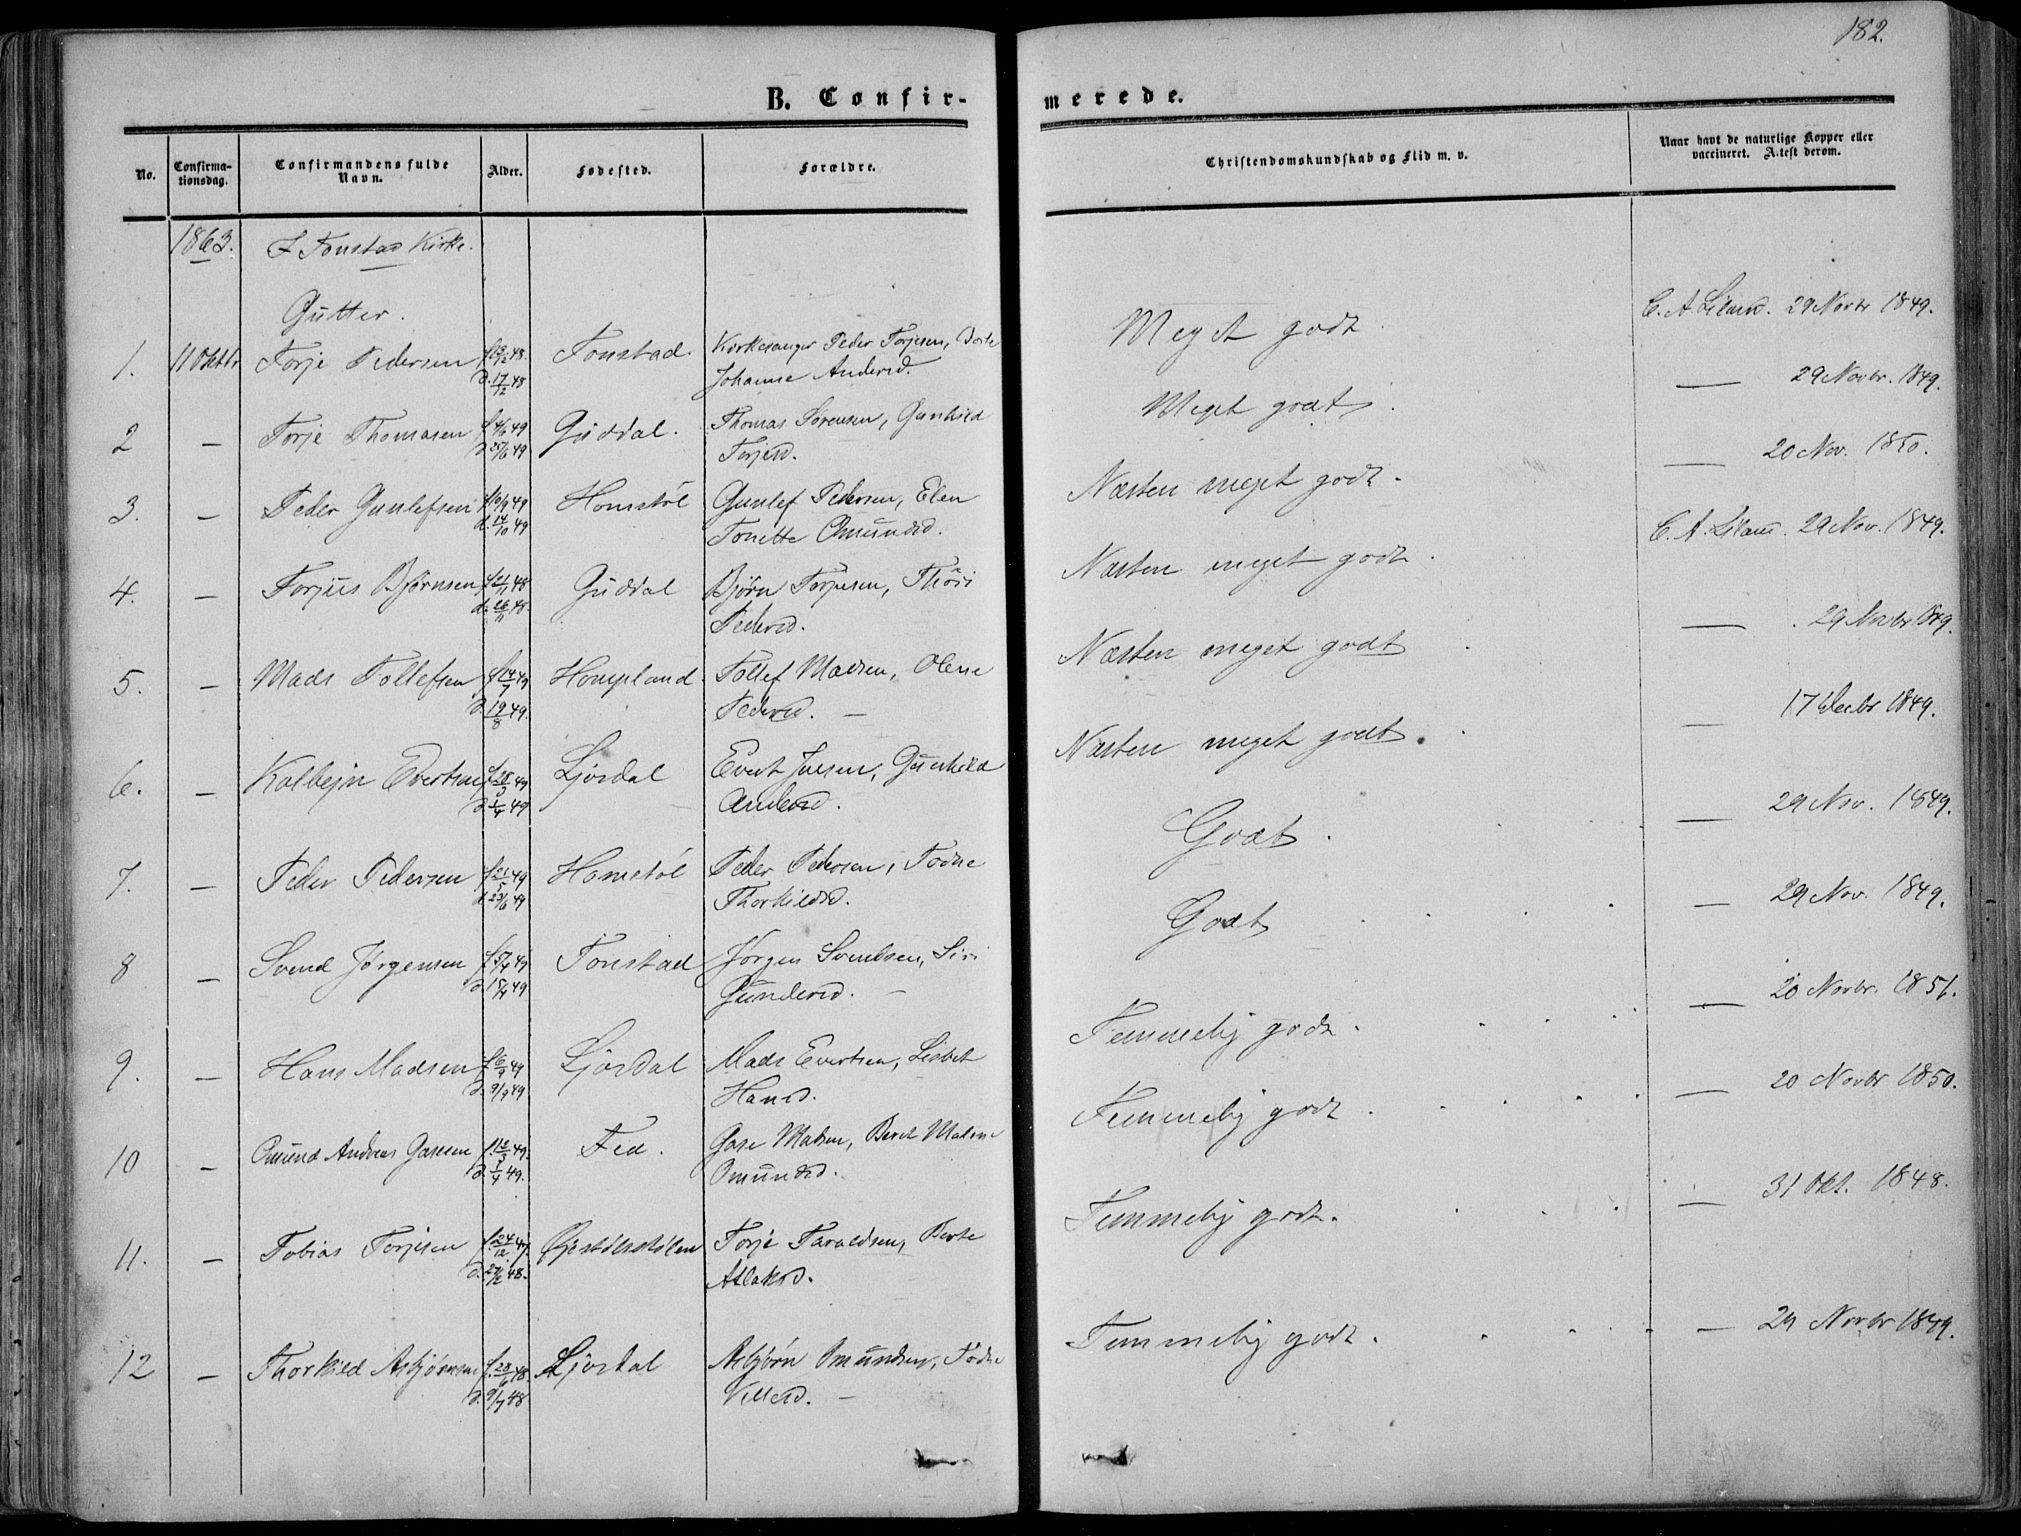 182.
B. Confir-
merede.
No.
Confirma-
tionsdag.
Confirmandens fulde
Navn.
Alder.
Fødested.
Forældre.
Christendomskundskab og Flid m. v.
Naar havt de naturlige Kopper eller
vaccineret. Attest derom.
1863.
I Tonstad Kirke.
Gutter.
1. 11 Oktbr Torje Pedersen 48. Tonstad. Kirkesanger Peder Torjesen, Berte
d. 17/12 48 Johanne Andersd.
Meget godt.
29 Novbr 1849.
2 — Torje Thomasen 49 Guddal. Thomas Sørensen, Gunhild
49 Torjesd.
Meget godt.
— 29 Novbr. 1849.
3. — Peder Gunlefsen 49 Homstøl Gunlef Pedersen, Elen
d. 14/10 49 Tonette Omundsd.
Næsten meget godt.
— 20 Nov. 1850.
4. — Torjus Bjørnsen f. 21/11 48 Guddal Bjørn Torjusen,
d. 26/11 48. Pedersd.
Næsten meget godt.
29 Nov. 1849.
5. — Mads Tollefsen 49 Hompland. Tollef Madsen, Olene
d. 19/8 49. Pedersd. —
Næsten meget godt
— 29 Novbr 1849.
6. — Kolbejn Evertsen f. 28/3 49 Ljosdal Evert Jensen, Gunhild
d. 1/4 49 Andersd.
Næsten meget godt.
— 17 Decbr 1849.
7. — Peder Pedersen f. 21/5 49 Homstøl Peder Pedersen, Todne
49 Thorkildsd.
Godt.
— 29 Nov. 1849.
8 — Svend Jørgensen 49 Tonstad Jørgen Svendsen, Siri
49 Gundersd. —
Godt
— 29 Nov. 1849.
9. — Hans Madsen 49 Ljosdal Mads Evertsen, Lisbet
d. 9/9 49 Hansd.
Temmelig godt.
— 20 Novbr. 1851.
10 — Omund Andreas Gasesen 49. Fed. Gase Madsen, Beret Malene
d. 1/4 49. Omundsd.
Temmelig godt.
— 20 Novbr 1850.
11. — Tobias Torjesen f. 24/12 47 Torje Taraldsen, Berte
48. Aslaksd.
Temmelig godt.
— 31 Okt. 1848.
12 — Thorkild Asbjørnsen 48. Ljosdal Asbjørn Omundsen, Todne
d. 9/7 48 —
Temmelig godt.
— 29 Novbr 1849.